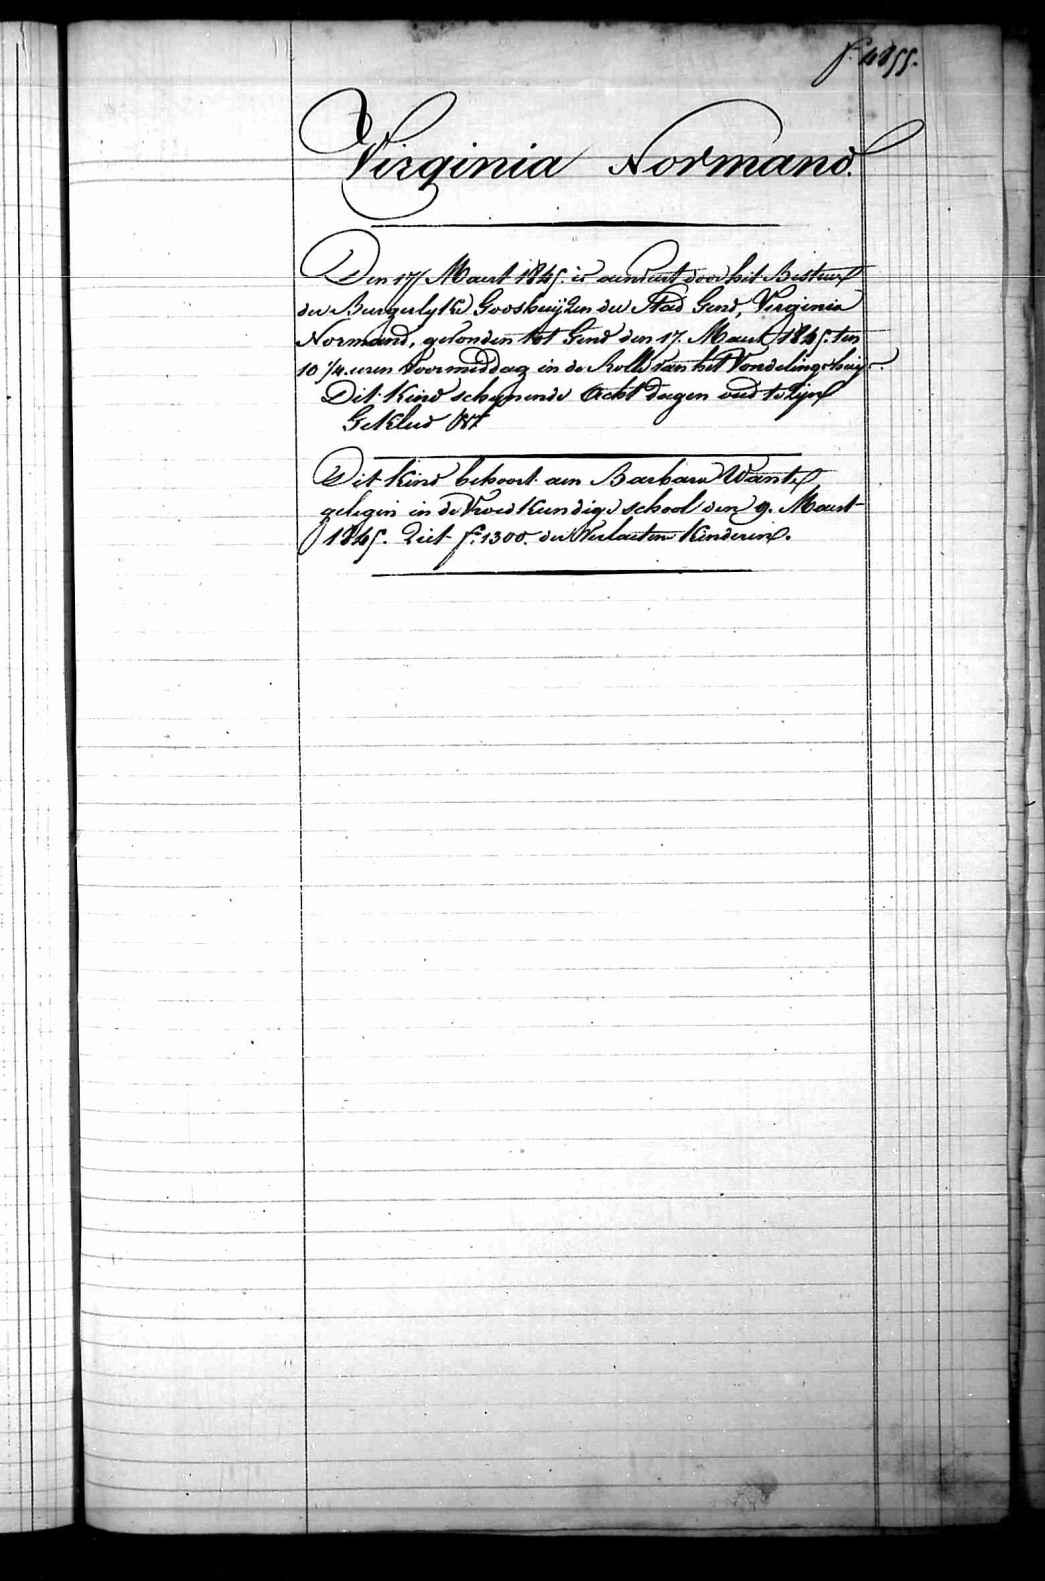 f. 4855.
Virginia Normand.
Den 17 Maert 1845. is aenveert door het Bestuer
der Burgerlyke Godshuijzen der Stad Gend, Virginia
Normand, gevonden tot Gend den 17. Maert 1845. ten
10 1/4. uren Voormiddag in de Rolle van het Vondelingshuijs.
Dit Kind schynende Acht dagen oud te zijn
Gekleed
Dit Kind behoort aen Barbara Wante
gelegen in de Vroedkundige school den 9. Maert
1845. Ziet f. 1300. der Verlaeten Kinderen.